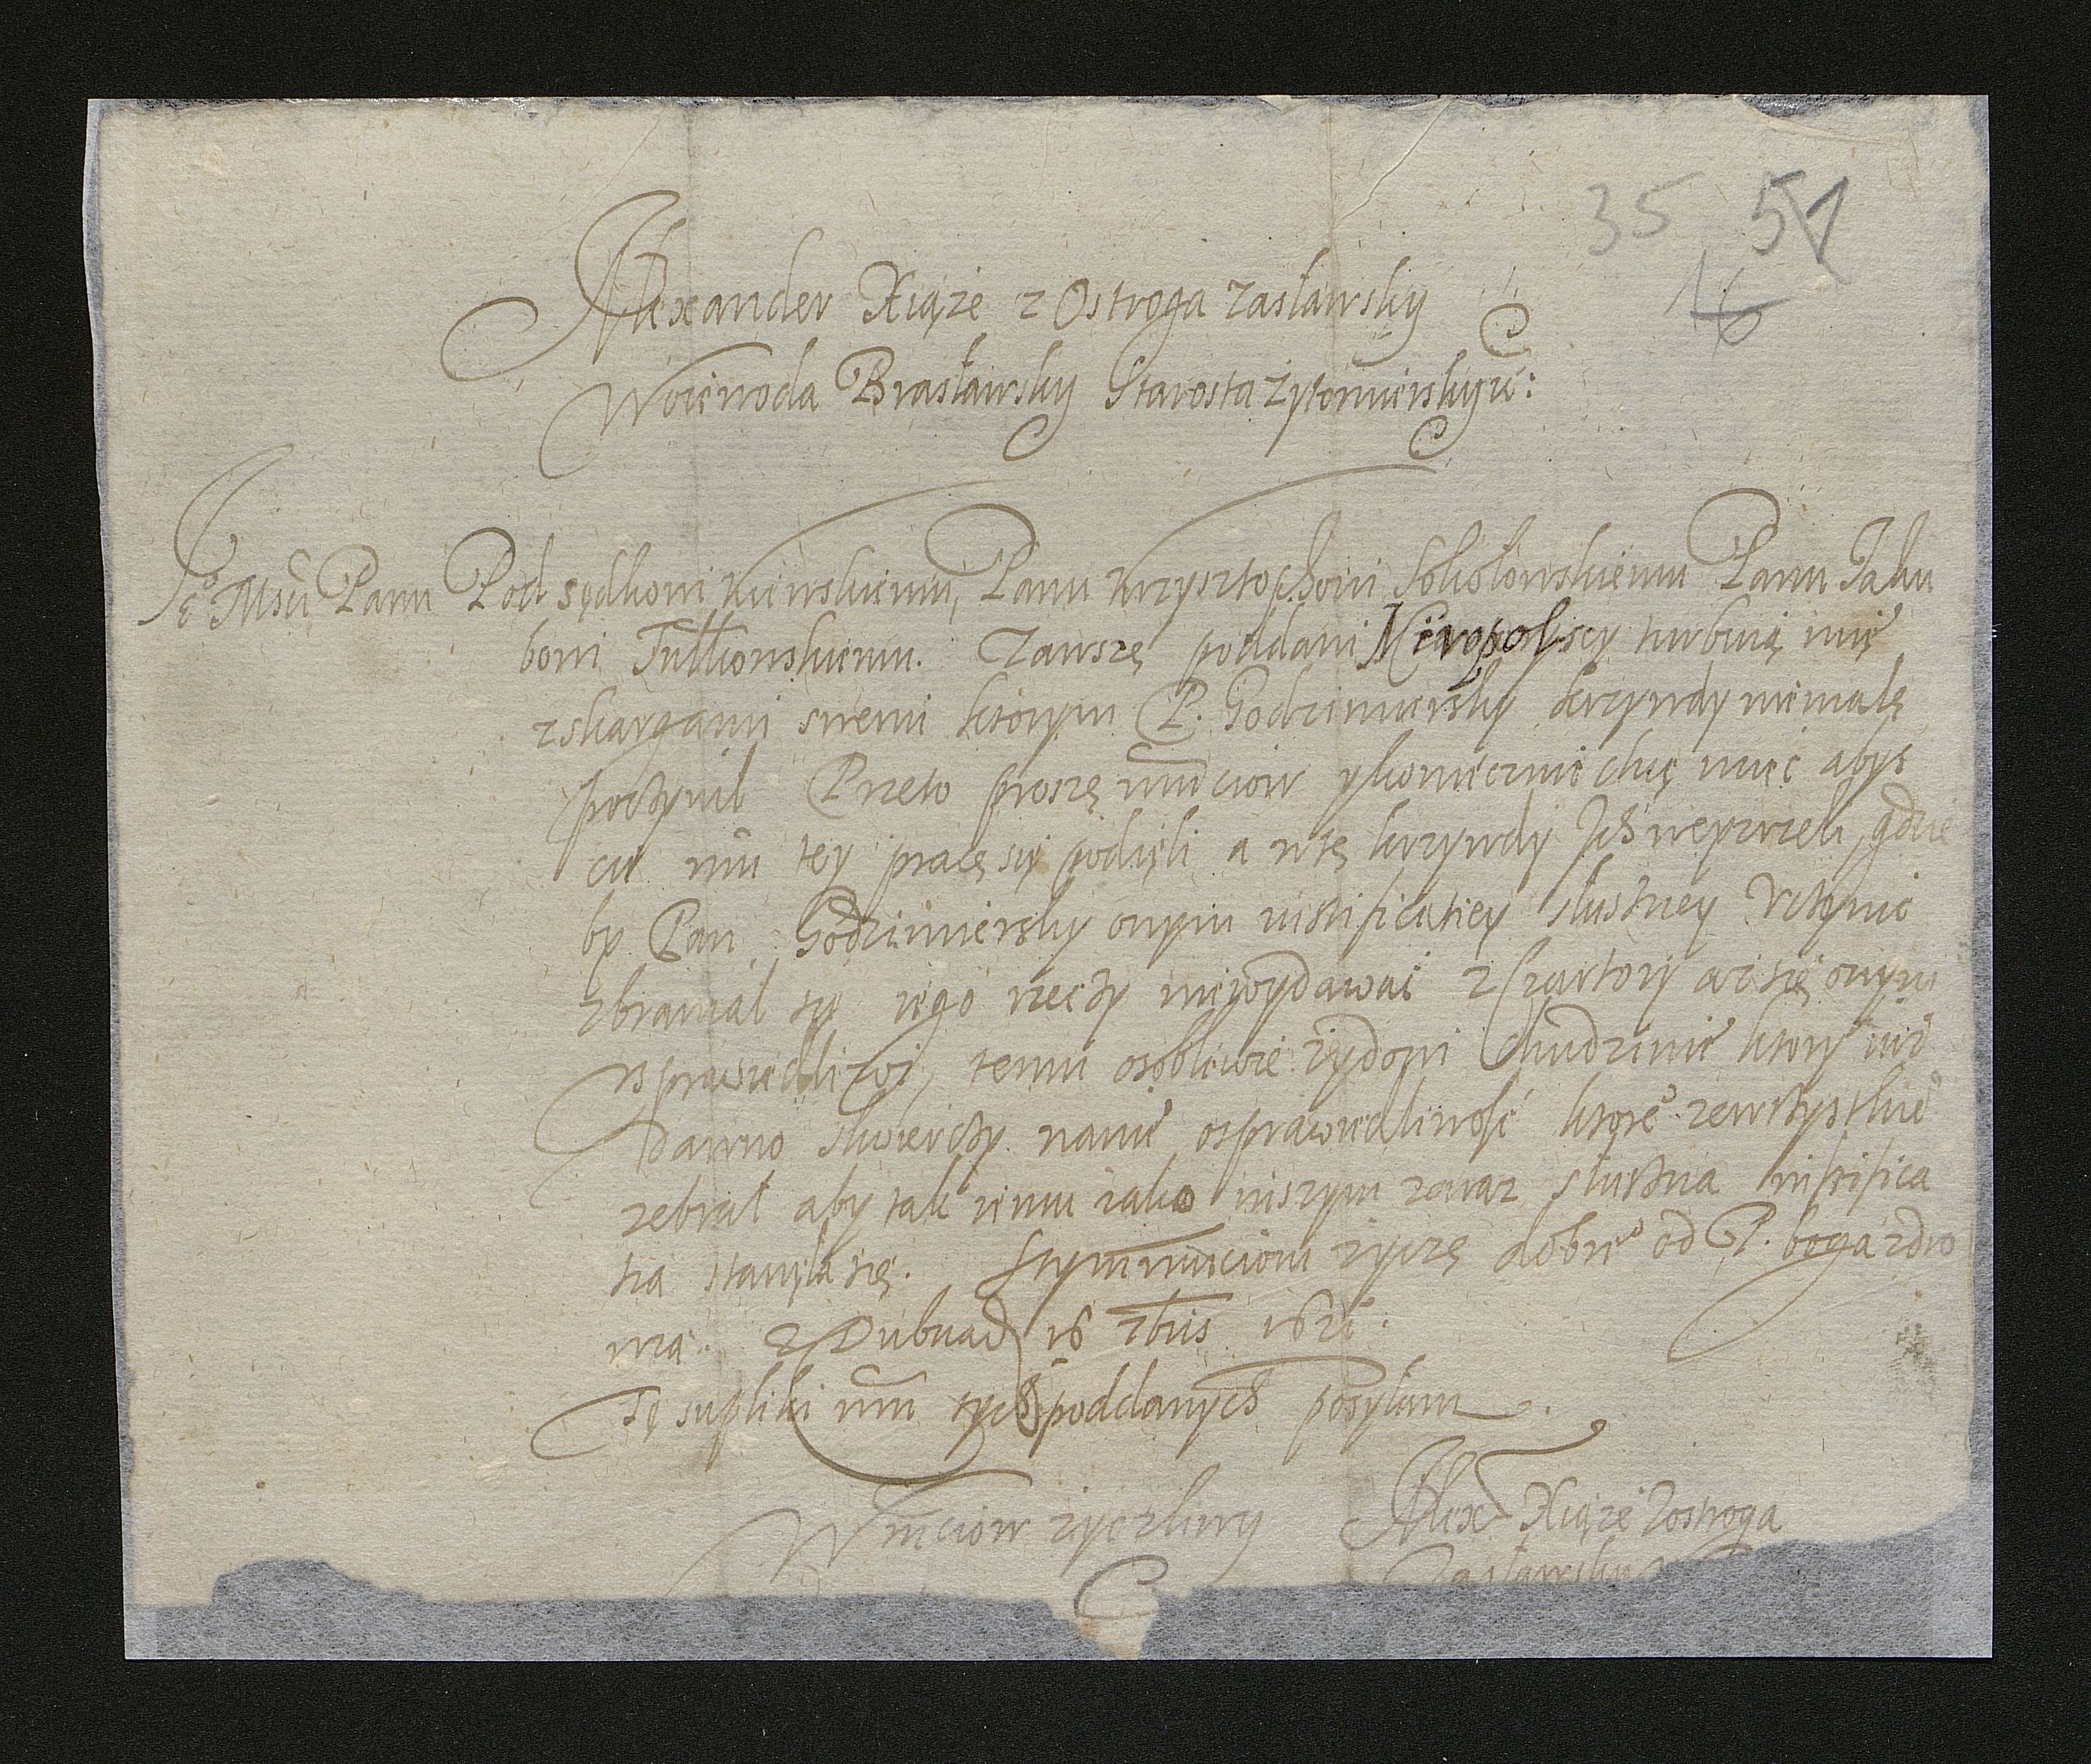 35 51
16
Alexander Xiąże z Ostroga Zasławsky
Woiewoda Brasławsky Starosta Zytomiersky w:
Je° Mści Panu Pod sędkowi kiewskiemu, Panu Krzysztophowi Sokołowskiemu Panu Jaku
bowi Tułkowskiemu. Zawszę poddani Miropolscy turbuią mię
z skargami swemi ktorym P. Godzimirsky krzywdy niemałe
poczynił Przeto proszę wmciow y koniecznie chcę mieć abys
cie mi tey pracę się podięli a w tę krzywdy Ich weyrzeli, gdzie
by Pan Godzimiersky onym iustificatiey słuszney Vczynic
zbraniał się iego rzeczy niewydawać z Czartorÿ aż się onym
vsprawiedliwi, temu osobliwie żydowi Chudzinie ktorÿ iuż
dawno skwierczy namię osprawiedliwość ktore° ze wszystkie°
zebrał aby tak iemu iako inszym zaraz słuszna iustifica
tia stanęła się. Sczym wmciom życzę dobre° od P. boga zdro
wia. Z Dubna d 16 7bris 1621.
Tę supliki wm tych poddanych posyłam.
Wmciow życzliwy Alex Xiąże Zostroga
Zasławsky